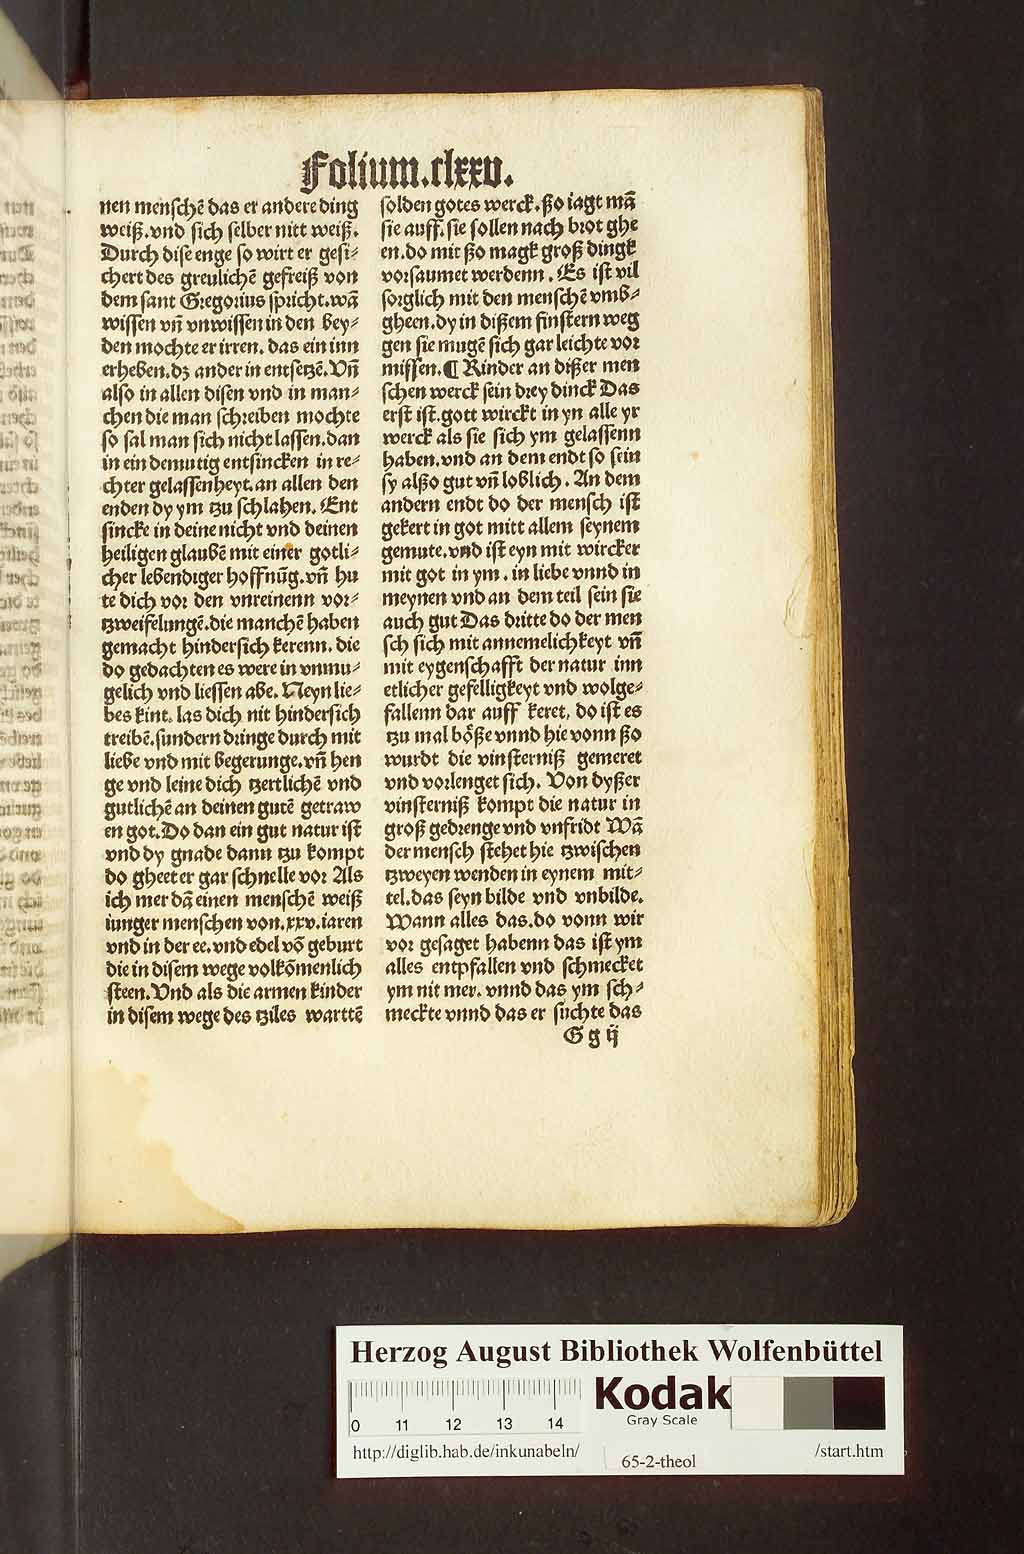 Folium.clxxv.
nen menschē das er andere ding
weiß.vnd sich selber nitt weiß.
Durch dise enge so wirt er gesi⸗
chert des greulichē gefreiß von
dem sant Gregorius spricht.wā
wissen vn̄ vnwissen in den bey⸗
den mochte er irren. das ein inn
erheben.dz ander in entsetzē.Vn̄
also in allen disen vnd in man⸗
chen die man schreiben mochte
so sal man sich nicht lassen.dan
in ein demutig entsincken in re⸗
chter gelassenheyt.an allen den
enden dy ym tzu schlahen. Ent
sincke in deine nicht vnd deinen
heiligen glaubē mit einer gotli⸗
cher lebendiger hoffnūg.vn̄ hu
te dich vor den vnreinenn vor⸗
tzweifelungē.die manchē haben
gemacht hindersich kerenn. die
do gedachten es were in vnmu⸗
gelich vnd liessen abe. Neyn lie⸗
bes kint. las dich nit hindersich
treibē.sundern dringe durch mit
liebe vnd mit begerunge.vn̄ hen
ge vnd leine dich tzertlichē vnd
gutlichē an deinen gutē getraw
en got. Do dan ein gut natur ist
vnd dy gnade dann tzu kompt
do gheet er gar schnelle vor Als
ich mer dā einen menschē weiß
iunger menschen von.xxv.iaren
vnd in der ee.vnd edel vō geburt
die in disem wege volkōmenlich
steen. Vnd als die armen kinder
in disem wege des tziles warttē
solden gotes werck. ßo iagt mā
sie auff. sie sollen nach brot ghe
en.do mit ßo magk groß dingk
vorsaumet werdenn . Es ist vil
sorglich mit den menschē vmb⸗
gheen.dy in dißem finstern weg
gen sie mugē sich gar leichte vor
missen.¶ Kinder an dißer men
schen werck sein drey dinck Das
erst ist.gott wirckt in yn alle yr
werck als sie sich ym gelassenn
haben.vnd an dem endt so sein
sy alßo gut vn̄ loblich . An dem
andern endt do der mensch ist
gekert in got mitt allem seynem
gemute.vnd ist eyn mit wircker
mit got in ym . in liebe vnnd in
meynen vnd an dem teil sein sie
auch gut Das dritte do der men
sch sich mit annemelichkeyt vn̄
mit eygenschafft der natur inn
etlicher gefelligkeyt vnd wolge⸗
fallenn dar auff keret, do ist es
tzu mal böße vnnd hie vonn ßo
wurdt die vinsterniß gemeret
vnd vorlenget sich. Von dyßer
vinsterniß kompt die natur in
groß gedrenge vnd vnfridt Wā
der mensch stehet hie tzwischen
tzweyen wenden in eynem mit⸗
tel.das seyn bilde vnd vnbilde.
Wann alles das.do vonn wir
vor gesaget habenn das ist ym
alles entpfallen vnd schmecket
ym nit mer. vnnd das ym sch⸗
meckte vnnd das er suchte das
G g ij
Herzog August Bibliothek Wolfenbüttel
0 11 12 13 14
Kodak
Gray Scale
http://diglib.hab.de/inkunabeln/
65-2-theol
/start.htm